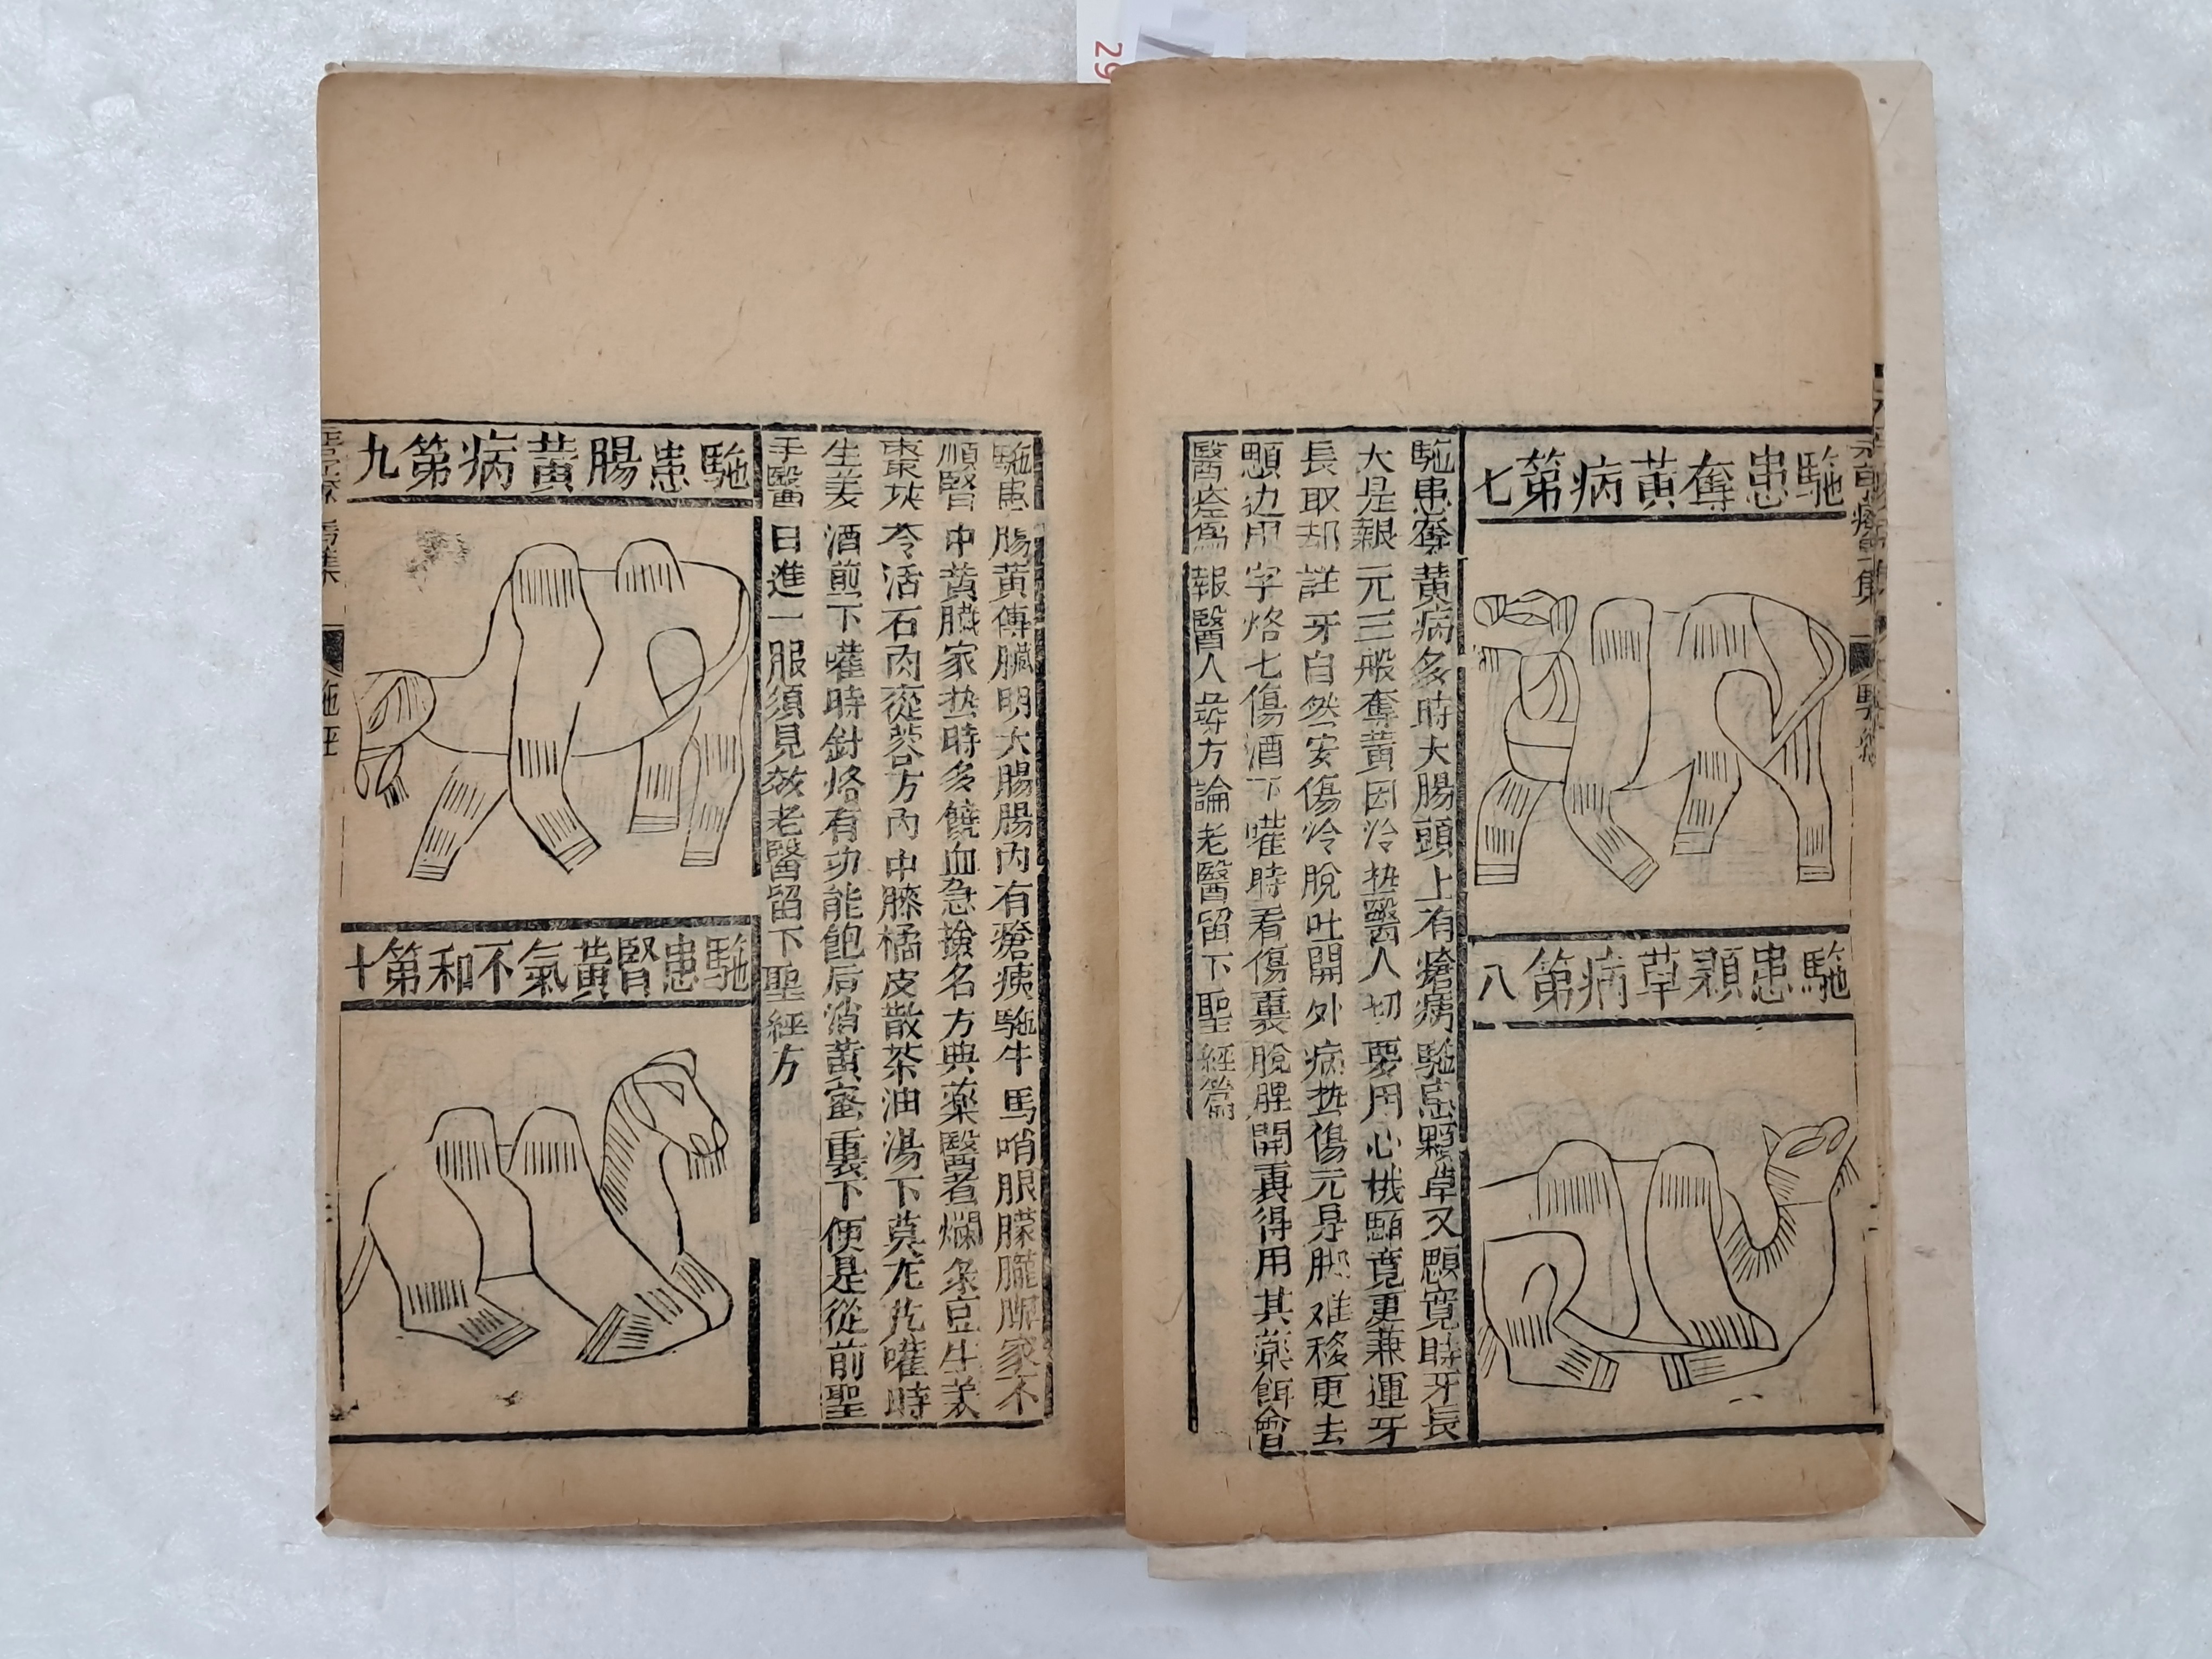 駞患奪黃病第七
駞患顆草病第八
駞患奪黃病多時大腸頭上有瘡痍駞患顆草又顋寬時牙長
大是艱元三般奪黃因冷热醫人切要用心機顋寬更兼運牙
長取却註牙自然安傷冷脫吐開外病热傷元是脚难移更去
顋边用字烙七傷酒下嚾時看傷裏脫脾開再得用其藥餌會
醫痊爲報醫人尋方論老醫留下聖經篇
駞患腸黃病第九
駞患腎黃氣不和第十
駞患腸黃傳臟明大腸腸內有瘡痍駞牛馬哨眼朦朧脾家不
順醫中黃臟家热時多饒血急搶名方典藥醫者爛菉豆生羙
棗茯苓活石肉蓯蓉方內中膝橘皮散茶油湯下莫尤疑嚾時
生姜酒煎下嚾時針烙有功能飽后消黃蜜裏下便是從前聖
手醫日進一服須見效老醫留下聖經方
駞經
29